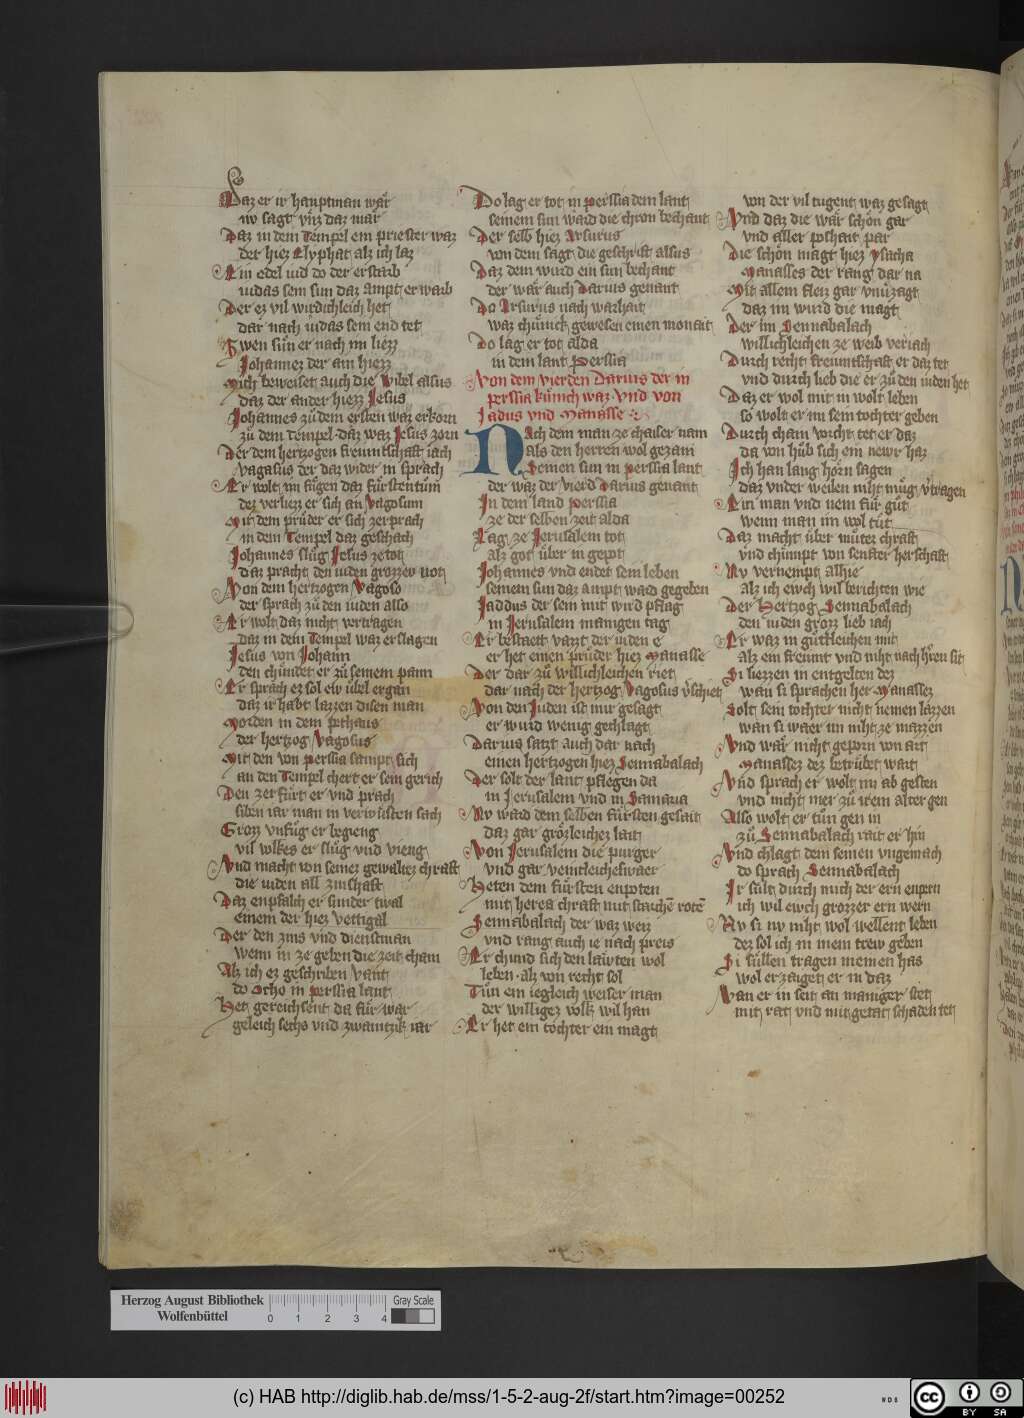 Daz er ir hauptman wär
nv sagt vnz daz mär
Daz in dem Tempel ein priester waz
der hiez Elyphat alz ich laz
Ein edel iud do der erstarb
iudas sein sun daz ampt erwarb
Der ez vil wirdichleich het
dar nach iudas sein end tet
Zwen sün er nach im liezz
Johannez der ain hiezz
Mich beweiset auch die Bibel alsus
daz der ander hiezz Jesus
Johannes zů dem ersten waz erkorn
zů dem Tempel daz waz Jesus zorn
Der dem hertzogen freuntschaft iach
Vagasus der daz wider in sprach
Er wolt im fügen daz fürstentům
dez verliezz er sich an Vagosum
Mit dem prüder er sich zerprach
in dem Tempel daz geschach
Johannes slůg Jesus ze tot
daz pracht den iuden grozzev not
Von dem hertzogen Vagoso
der sprach zů den iuden also
Er wolt daz nicht vertragen
daz in dem Tempel waz erslagen
Jesus von Johann
den chündet er zů seinem pann
Er sprach ez sol ew übel ergan
daz ir habt lazzen disen man
Morden in dem pethaus
der hertzog Vagosus
Mit den von Perssia sampt sich
an den Tempel chert er sein gerich
Den zerfürt er vnd prach
siben iar man in verwüsten sach
Grozz vnfůg er begieng
vil volkes er slůg vnd vieng
Vnd macht von seiner gewaltez chraft
die iuden all zinshaft
Daz enpfalch er sunder twal
einem der hiez Vettigal
Der den zins vnd dienstman
wenn in ze geben die zeit cham
Alz ich ez geschriben vant
do Ocho in Perssia lant
Het gereichsent da für war
geleich sechs vnd zwaintzik iar
Do lag er tot in Perssia dem lant
seinem sun ward die chron bechant
Der selb hiez Arsurus
von dem sagt die geschrift alsus
Daz dem wurd ein sun bechant
der wär auch Darius genant
Do Arsurus nach warhait
waz chünich gewesen einen monait
Do lag er tot alda
in dem lant Perssia
Von dem vierden Darius der in
perssia künich waz vnd von
Jadus vnd Manasse
Nach dem man ze chaiser nam
als den herren wol gezam
Seinen sun in Perssia lant
der waz der vierd Darius genant
In dem land Perssia
ze der selben zeit alda
Lag ze Jerusalem tot
alz got über in gepot
Johannes vnd endet sein leben
seinem sun daz ampt ward gegeben
Jaddus der sein mit wird pflag
in Jerusalem manigen tag
Er bestaett vazt der iuden e
er het einen prüder hiez Manasse
Der dar zů willichleichen riet
dar nach der hertzog Vagosus v̓schiet
Von den Juden ist mir gesagt
er wurd wenig gechlagt
Darius satzt auch dar nach
einen hertzogen hiez Sennabalach
Der solt der lant pflegen da
in Jerusalem vnd in Samaria
Nv ward dem selben fürsten gesait
daz gar grözleichez lait
Von Jerusalem die purger
vnd gar veintleicheswaer
Heten dem fürsten enpoten
mit heres chraft mit starchē rotē
Sennabalach der waz weiz
vnd rang auch ie nach preis
Er chund sich den läwten wol
leben alz von recht sol
Tůn ein iegleich weiser man
der willigez volk wil han
Er het ein tochter ein magt
von der vil tugent waz gesagt
Vnd daz die wär schön gar
vnd aller poshait par
Die schön magt hiez Ysacha
Manasses der rang dar na
Mit allem fleiz gar vnuerzagt
daz im wurd die magt
Der im Sennabalach
willichleichen ze weib veriach
Durch recht freuntschaft er daz tet
vnd durch lieb die er zů den iuden het
Daz er wol mit in wolt leben
so wolt er im sein tochter geben
Durch chain vorcht tet er daz
da von hůb sich ein newr haz
Ich han lang hörn sagen
daz vnder weilen niht müg v̓tragen
Ein man vnd nem für gůt
wenn man im wol tůt
Daz macht über můtez chraft
vnd chümpt von senfter herschaft
Nv vernempt alhie
alz ich ewch wil berichten wie
Der Hertzog Sennabalach
den iuden grozz lieb iach
Er waz in gütleichen mit
alz ein freunt vnd niht nach h̓ren sit
Si liezzen in entgelten dez
wan si sprachen her Manassez
Solt sein tochter nicht nemen lazzen
wan si waer im niht ze mazzen
Vnd wär nicht geporn von art
Manassez dez betrübet wart
Vnd sprach er wolt im ab gesten
vnd nicht mer zů irem alter gen
Also wolt er tůn gen in
zů Sennabalach rait er hin
Vnd chlagt dem seinen vngemach
do sprach Sennabalach
Ir sült durch mich der ern enpern
ich wil ewch grozzer ern wern
Nv si nv niht wol wellent leben
dez sol ich in mein trew geben
Si süllen tragen meinen has
wol erzaiget er in daz
Wan er in seit an maniger stet
mit rat vnd mit getat schaden tet
Herzog August Bibliothek
Wolfenbüttel
0 1 2 3 4
Gray Scale
(c) HAB http://diglib.hab.de/mss/1-5-2-aug-2f/start.htm?image=00252
WDB
cc BY SA